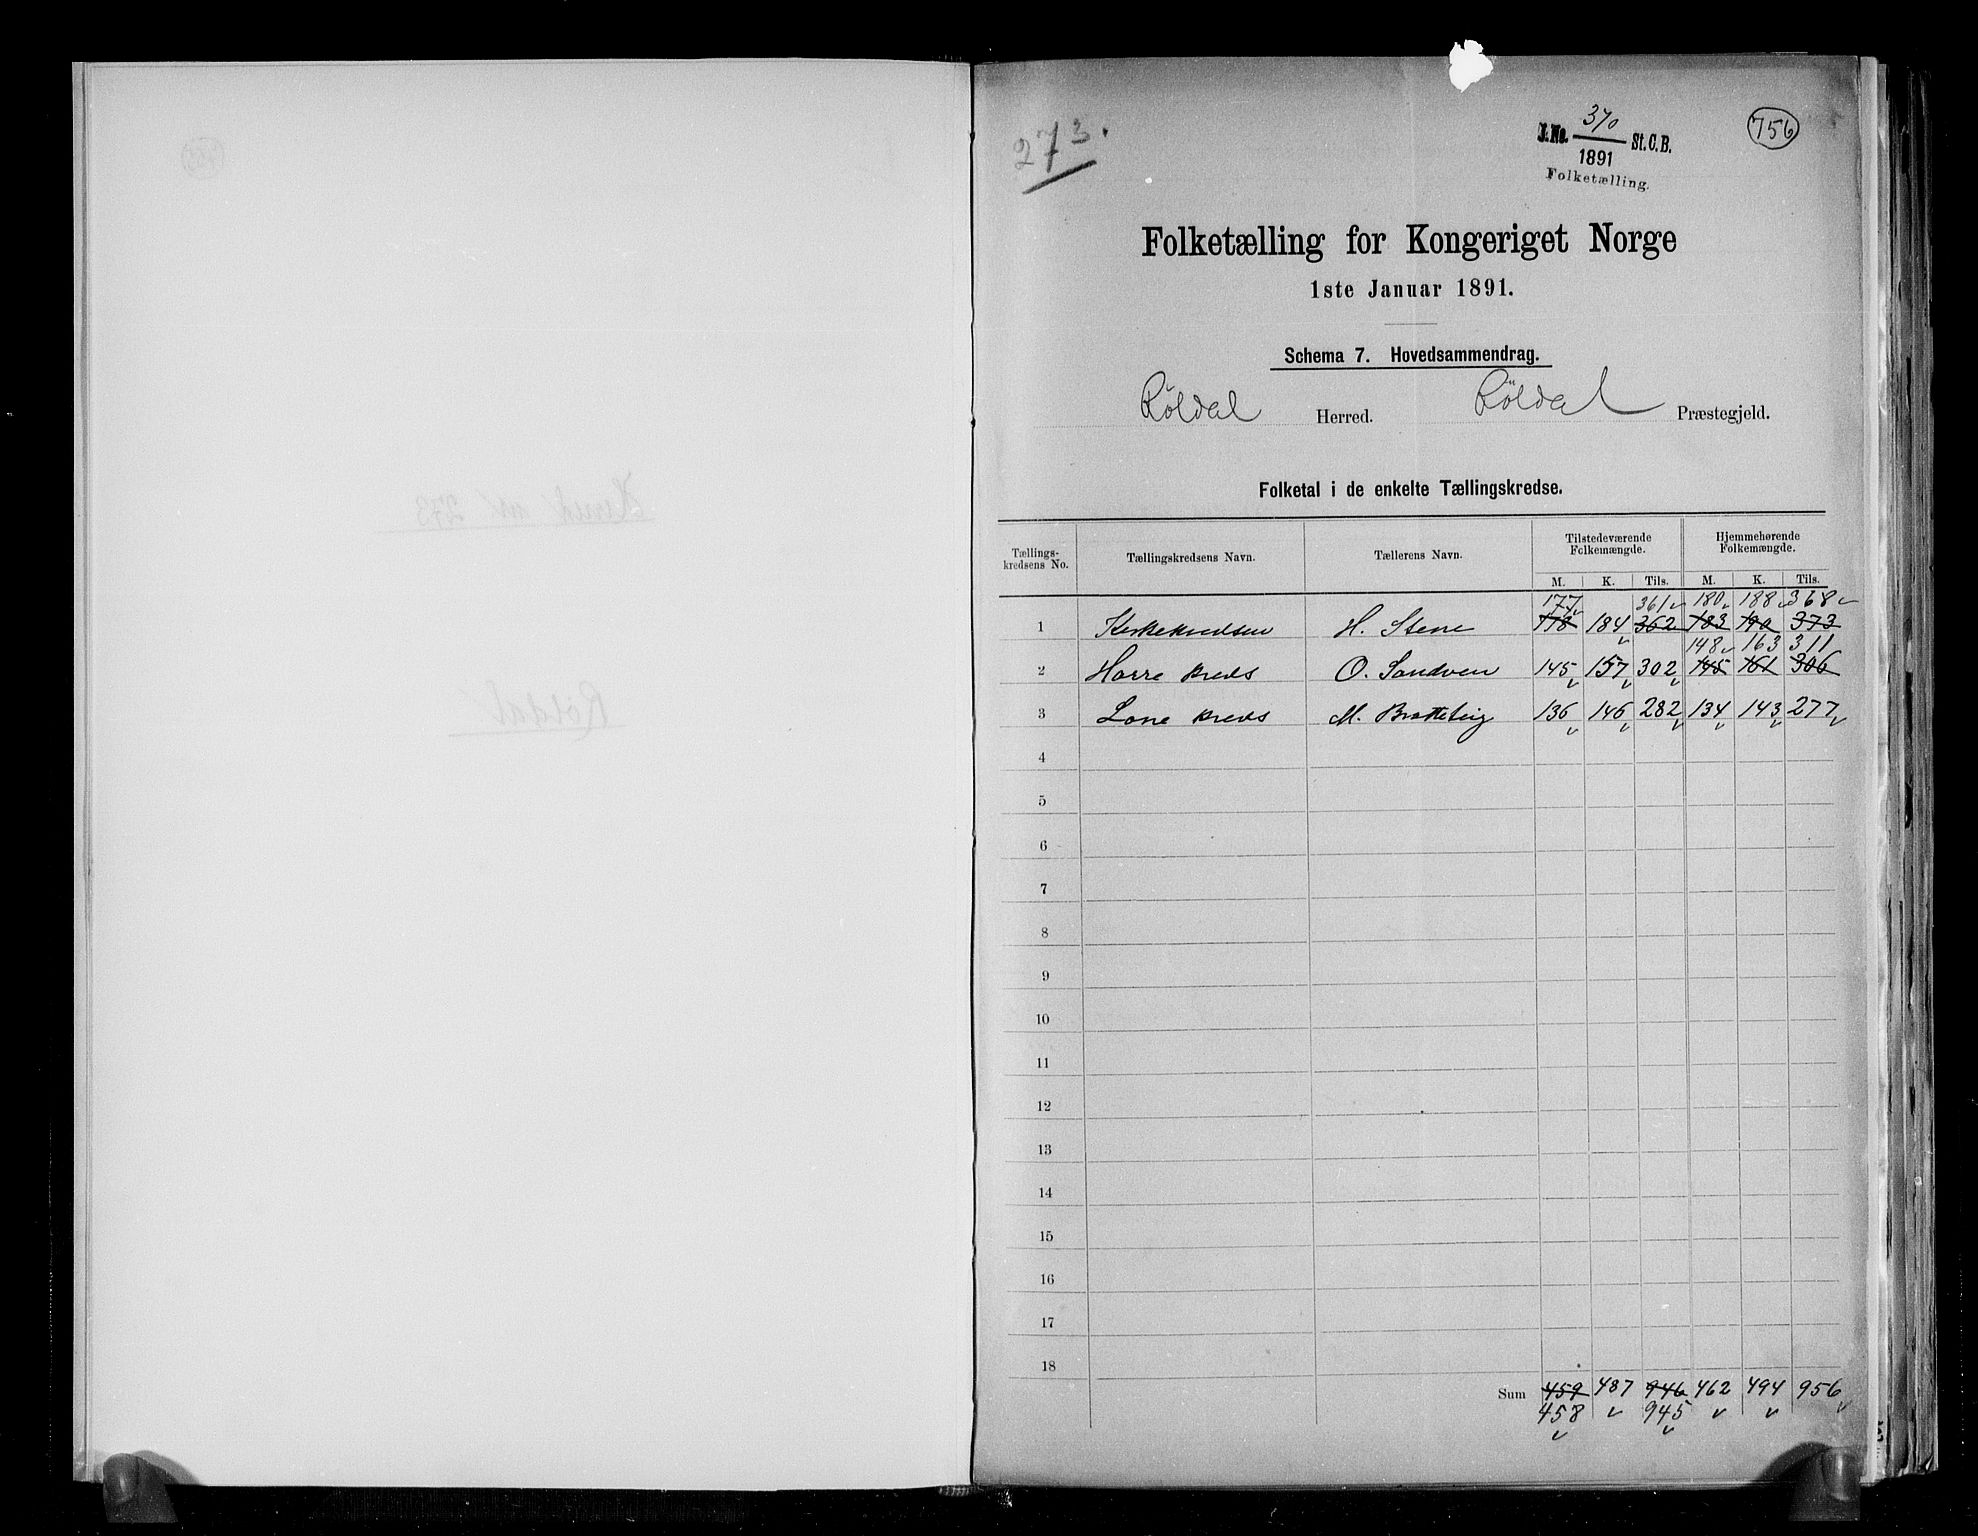 273.
J. No. 370 / 1891 St. C. B.
Folketælling.
756
Folketælling for Kongeriget Norge
1ste Januar 1891.
Schema 7. Hovedsammendrag.
Röldal Herred. Röldal Præstegjeld.
Folketal i de enkelte Tællingskredse.
Tællings-kredsens No. Tællingskredsens Navn. Tællerens Navn. Tilstedeværende Folkemængde. Hjemmehørende Folkemængde.
M. K. Tils. M. K. Tils.
177 361 180 188 368
1 Kirkekredsen H. Stene 178 184 362 183 190 373
148 163 311
2 Horre kreds O. Sandven 145 157 302 145 161 306
3 Lone kreds M. Bratteteig 136 146 282 134 143 277
4
5
6
7
8
9
10
11
12
13
14
15
16
17
18
Sum 459 487 946 462 494 956
458 945
Herred nr 273
Röldal